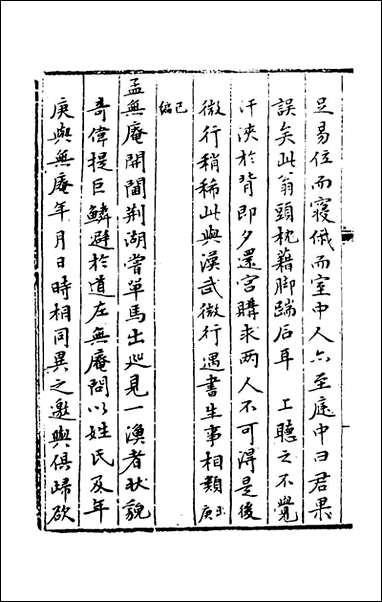 足易位而寝俄而室中人亦至庭中曰君果
誤矣此翁頭枕藉脚踹后耳 上聴之不覺
汗浹於背即夕還宮購求两人不可得是後
微行稍稀此與漢武微行遇書生事相類
庚巳編
孟無庵開閫荆湖嘗单馬出巡見一漁者狀貌
奇偉提巨鱗避於道左無庵問以姓氏及年
庚與無庵年月日時相同異之邀與俱歸欲